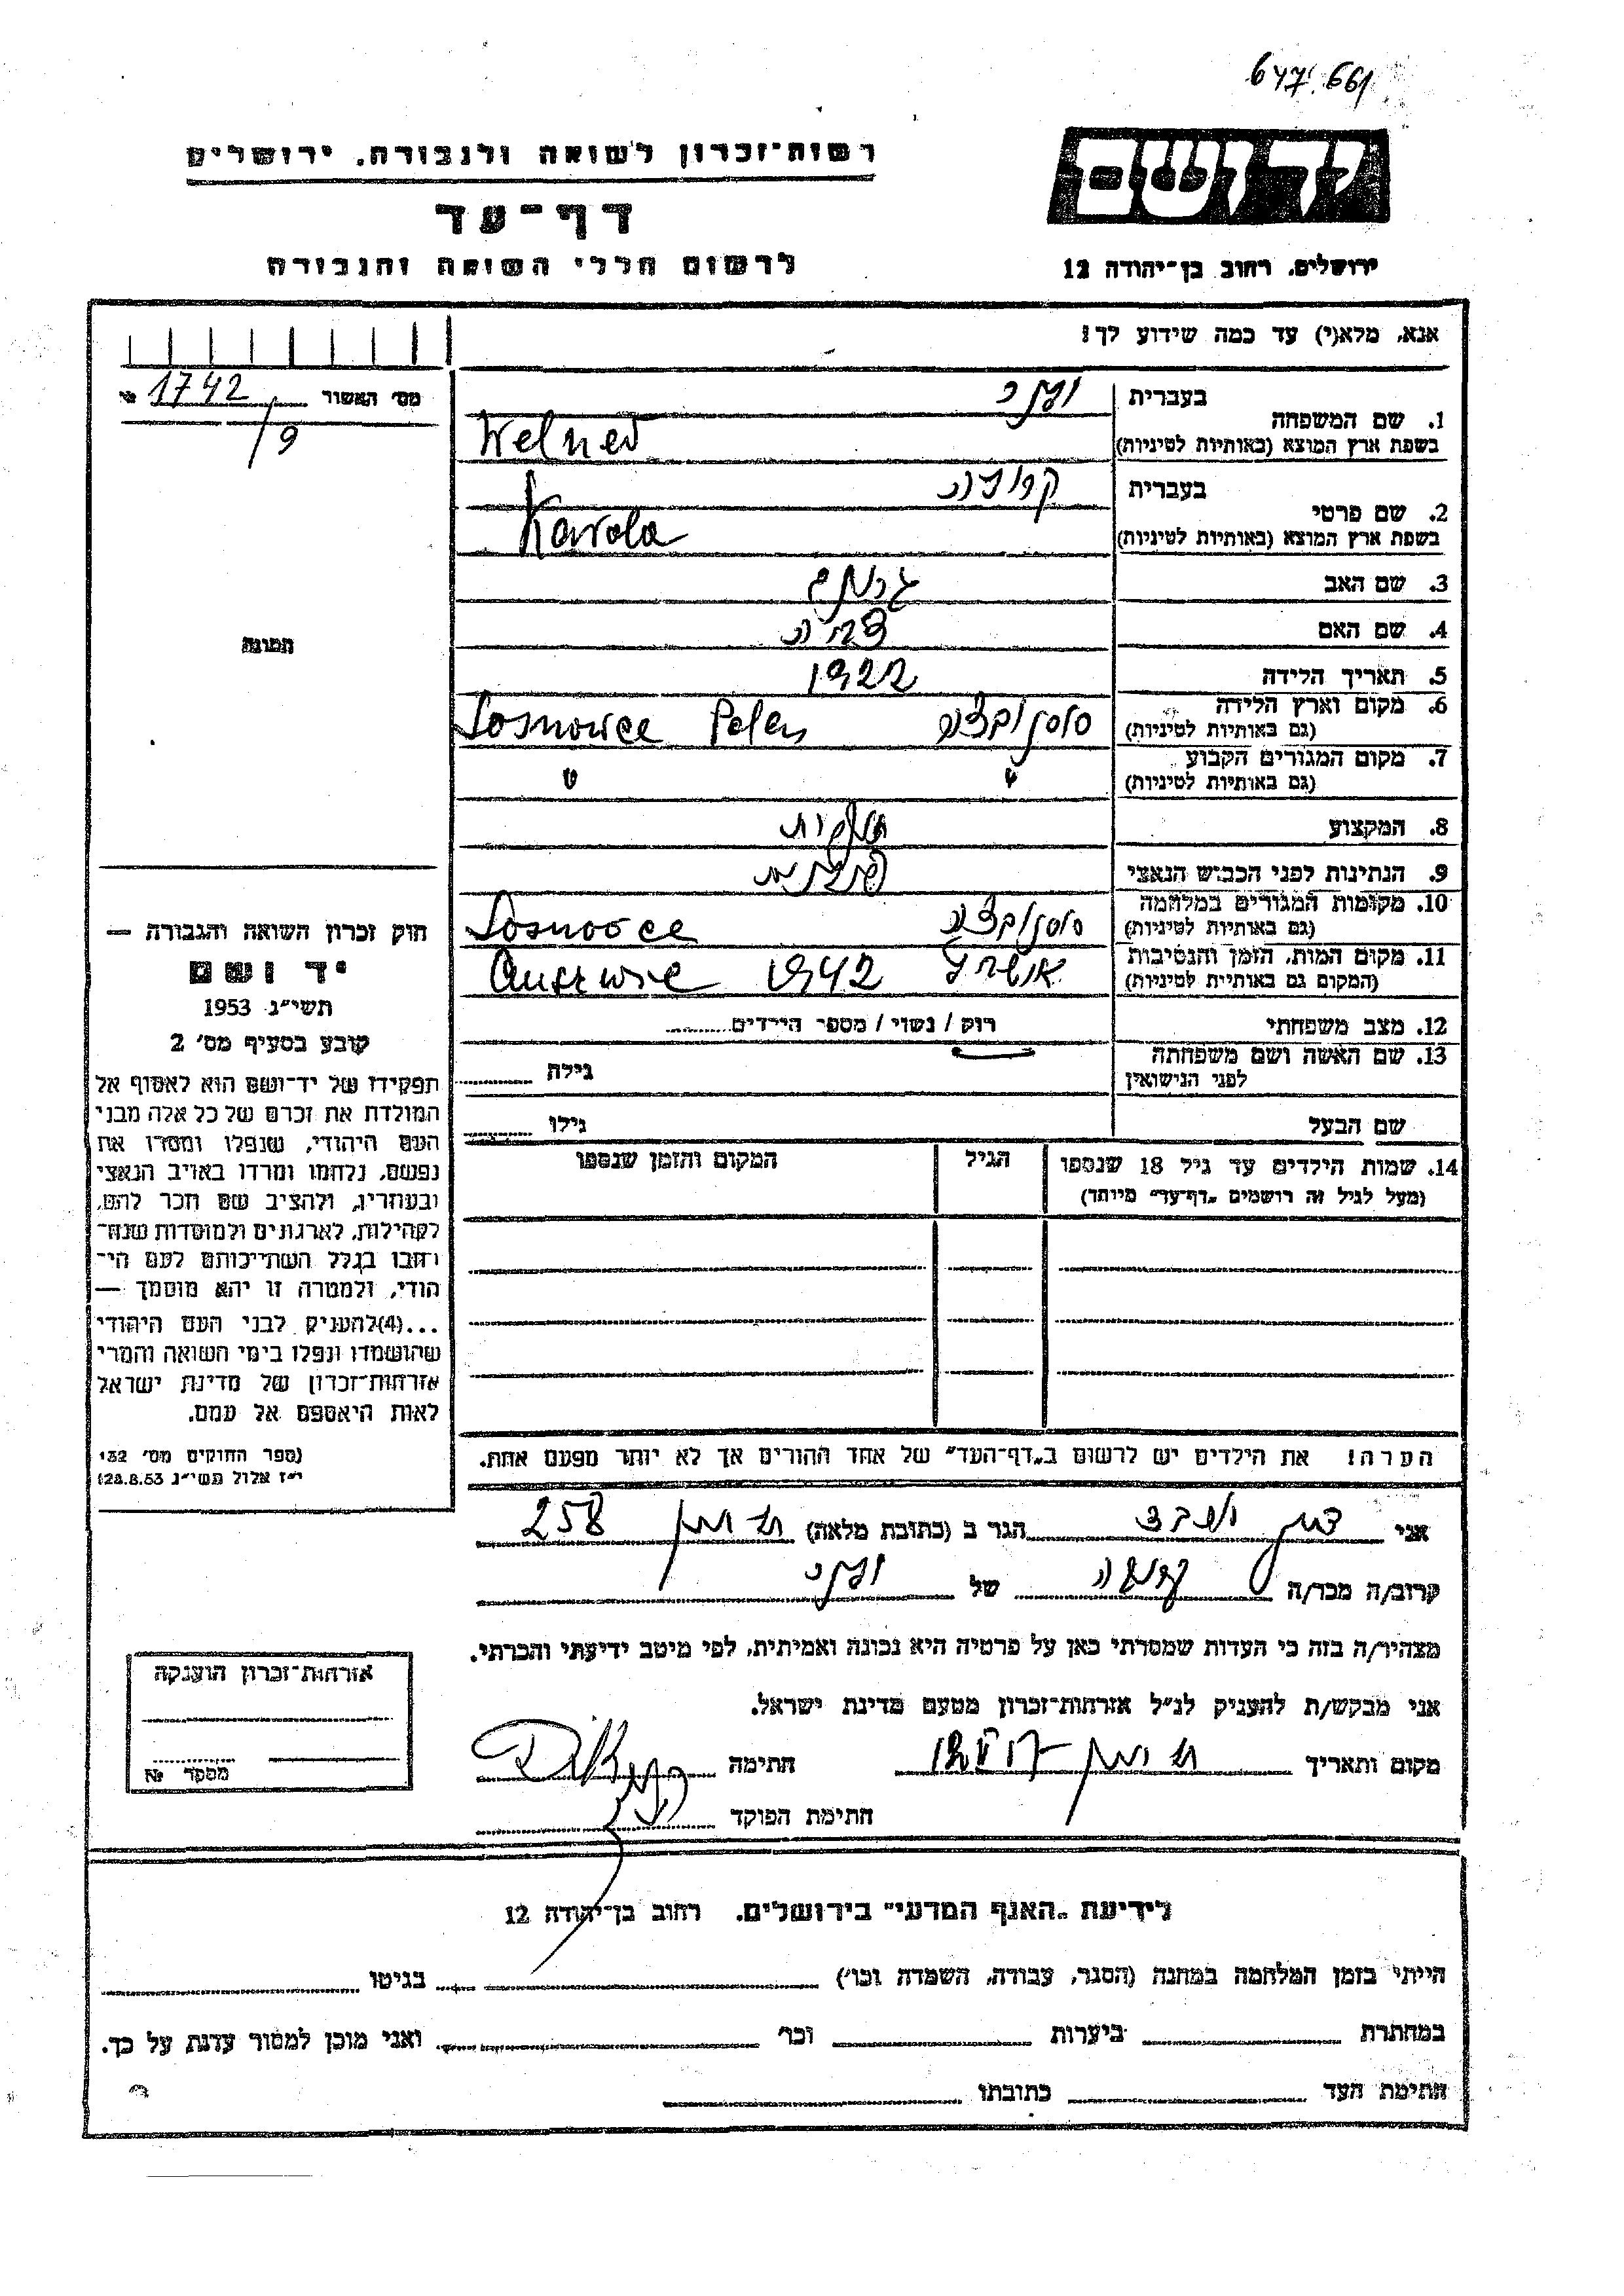 רשות-זכרון לשואה ולגבורה, ירושלים
דף-עד
לרשום חללי השואה והגבורה
יד ושם
ירושלים, רחוב בן-יהודה 12
אנא, מלא(י) עד כמה שידוע לך!
מס׳ האשור 1742
9
1. שם המשפחה
בעברית
בשפת ארץ המוצא (באותיות לטיניות) Welner
2. שם פרטי
בעברית קרולה
בשפת ארץ המוצא (באותיות לטיניות) Karola
3. שם האב
4. שם האם
5. תאריך הלידה 1922
6. מקום וארץ הלידה (גם באותיות לטיניות) סוסנוביצה Polen Sosnowce
7. מקום המגורים הקבוע (גם באותיות לטיניות)
8. המקצוע
9. הנתינות לפני הכבוש הנאצי פולנית
10. מקומות המגורים במלחמה (גם באותיות לטיניות) סוסנוביצה
11. מקום המות, הזמן והנסיבות (המקום גם באותיות לטיניות) 1942
12. מצב משפחתי רוק / נשוי / מספר הילדים
13. שם האשה ושם משפחתה לפני הנישואין גילה
שם הבעל גילו
14. שמות הילדים עד גיל 18 שנספו הגיל המקום והזמן שנספו
(מעל לגיל זה רושמים „דף-עד״ מיוחד)
הערה! את הילדים יש לרשום ב„דף-העד״ של אחד ההורים אך לא יותר מפעם אחת.
תמונה
חוק זכרון השואה והגבורה —
יד ושם
תשי״ג 1953
קובע בסעיף מס׳ 2
תפקידו של יד-ושם הוא לאסוף אל
המולדת את זכרם של כל אלה מבני
העם היהודי, שנפלו ומסרו את
נפשם, נלחמו ומרדו באויב הנאצי
ובעוזריו, ולהציב שם וזכר להם,
לקהילות, לארגונים ולמוסדות שנח-
רבו בגלל השתייכותם לעם הי-
הודי, ולמטרה זו יהא מוסמך —
...(4)להעניק לבני העם היהודי
שהושמדו ונפלו בימי השואה והמרי
אזרחות-זכרון של מדינת ישראל
לאות היאספם אל עמם.
(ספר החוקים מס׳ 132
י״ז אלול תשי״ג 28.8.53)
אני הגר ב (כתובת מלאה) 258
קרוב/ה מכר/ה של
מצהיר/ה בזה כי העדות שמסרתי כאן על פרטיה היא נכונה ואמיתית, לפי מיטב ידיעתי והכרתי.
אני מבקש/ת להעניק לנ״ל אזרחות-זכרון מטעם מדינת ישראל.
מקום ותאריך חתימה
חתימת הפוקד
אזרחות-זכרון הוענקה
מספר №
לידיעת „האגף המדעי״ בירושלים, רחוב בן-יהודה 12
הייתי בזמן המלחמה במחנה (הסגר, עבודה, השמדה וכו׳) בגיטו
במחתרת ביערות וכו׳ ואני מוכן למסור עדות על כך.
חתימת העד כתובתו